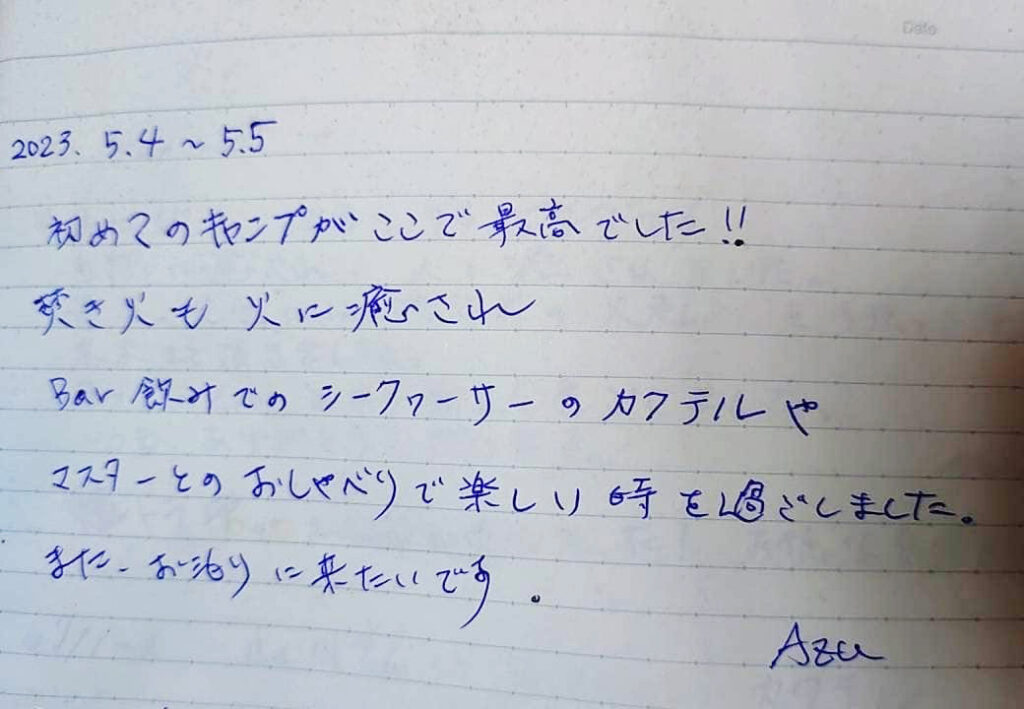 Date
2023. 5.4 ~ 5.5
初めてのキャンプがここで最高でした!!
焚き火も 火に癒され
Bar 飲みでの シークヮーサーの カクテルや
マスターとの おしゃべりで 楽しい 時を過ごしました。
また、お泊りに来たいです。
Azu